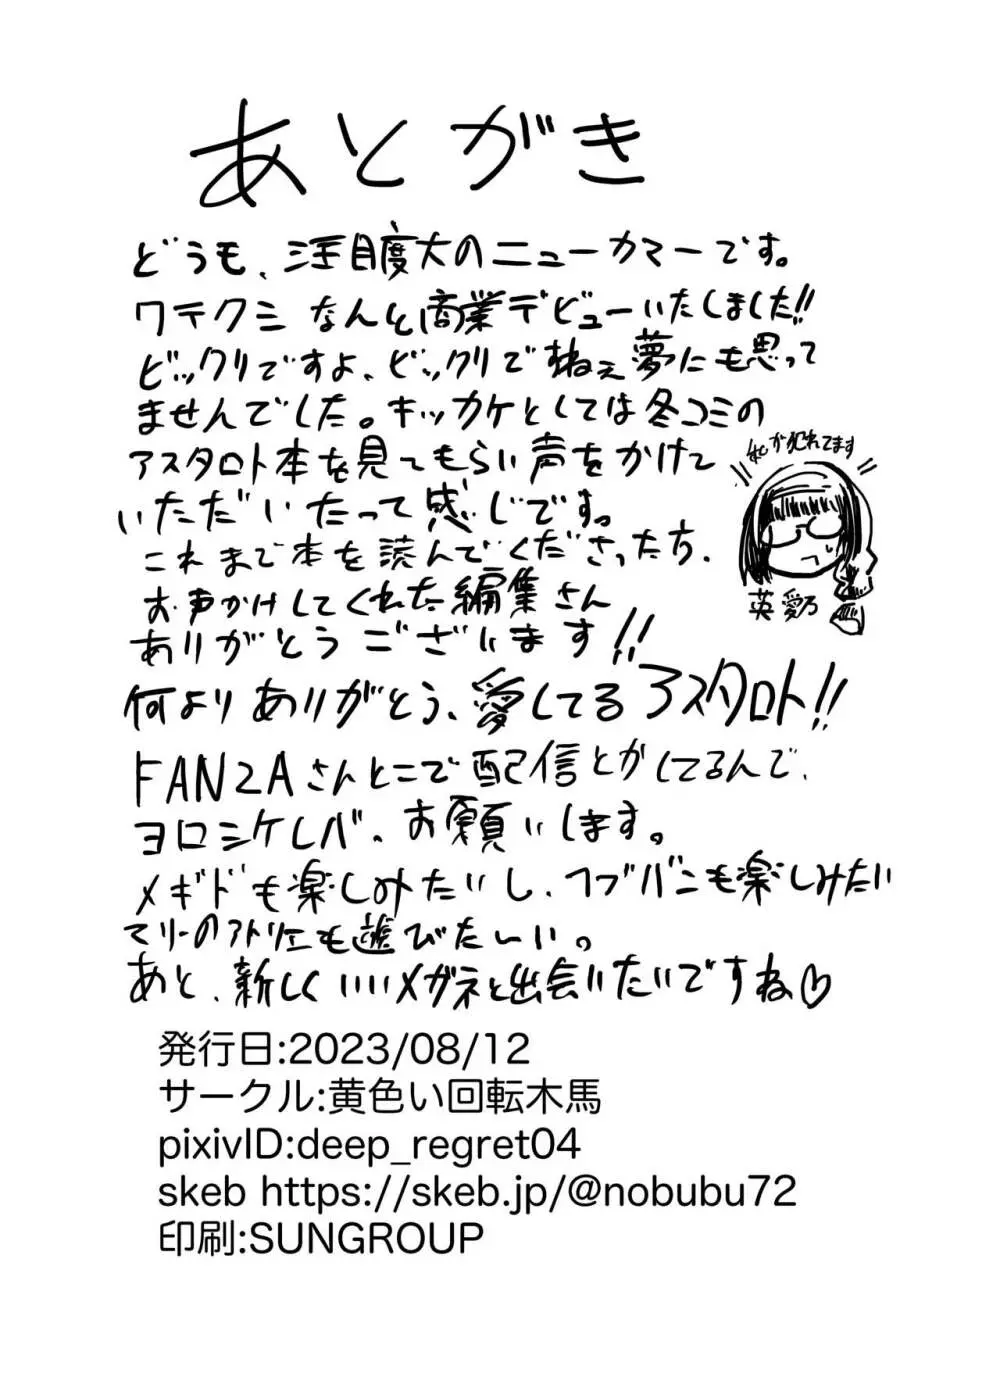 あとがき
どうも、注目度大のニューカマーです。
ワテクシ なんと商業デビューいたしました!!
ビックリですよ、ビックリでねぇ夢にも思って
ませんでした。キッカケとしては冬コミの
アスタロト本を見てもらい声をかけて
いただいたって感じです。
これまで本を読んでくださった方、
お声かけしてくれた編集さん
ありがとうございます!!
何よりありがとう、愛してるアスタロト!!
FANZAさんとこで配信とかしてるんで、
ヨロシケレバ、お願いします。
メギドも楽しみたいし、ヘブバンも楽しみたい
マリーのアトリエも遊びたーい。
あと、新しくいいメガネと出会いたいですね♡
かが犯れてます
英 愛乃
発行日:2023/08/12
サークル:黄色い回転木馬
pixivID:deep_regret04
skeb https://skeb.jp/@nobubu72
印刷:SUNGROUP